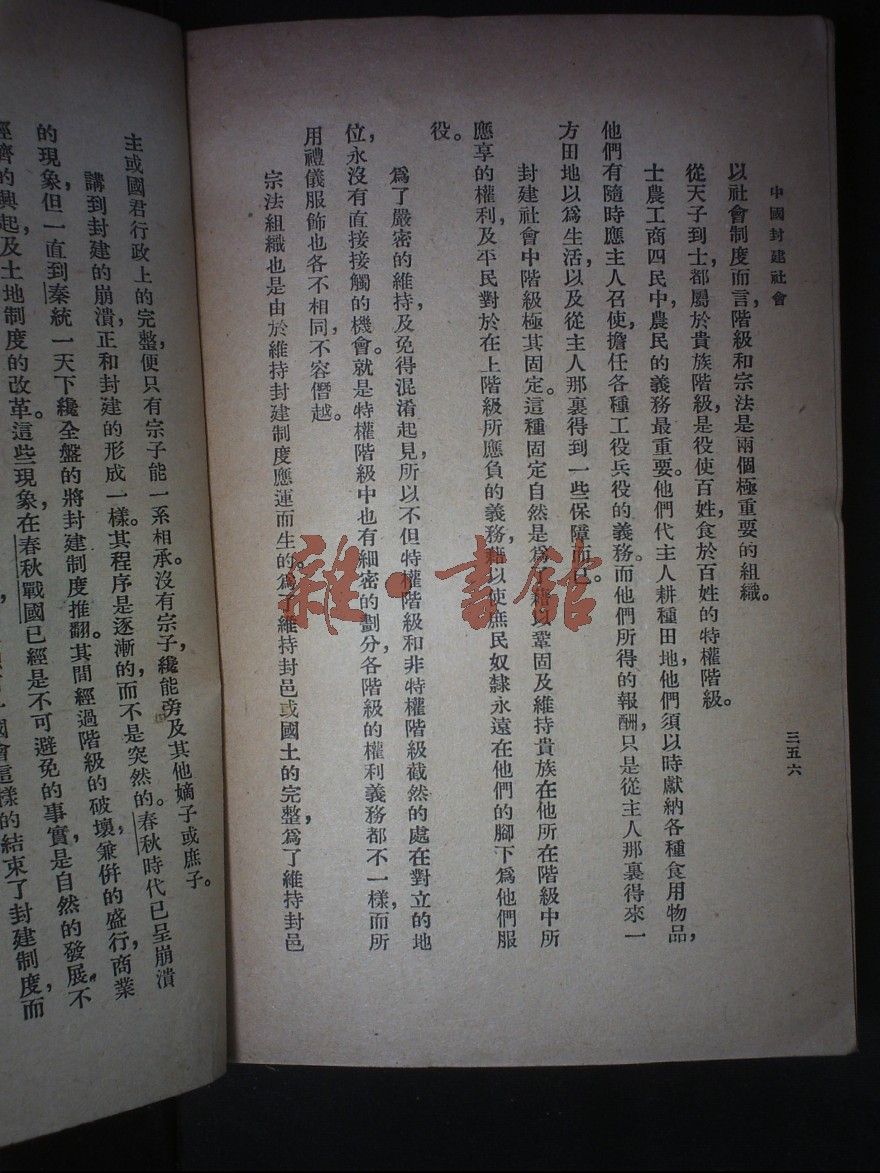 中國封建社會
三五六
以社會制度而言，階級和宗法是兩個極重要的組織。
從天子到士，都屬於貴族階級，是役使百姓，食於百姓的特權階級。
士農工商四民中，農民的義務最重要。他們代主人耕種田地，他們須以時獻納各種食用物品，
他們有隨時應主人召使，擔任各種工役兵役的義務。而他們所得的報酬，只是從主人那裏得來一
方田地以爲生活，以及從主人那裏得到一些保障而已。
封建社會中階級極其固定。這種固定自然是爲了藉以鞏固及維持貴族在他所在階級中所
應享的權利，及平民對於在上階級所應負的義務，藉以使庶民奴隸永遠在他們的腳下爲他們服
役。
爲了嚴密的維持，及免得混淆起見，所以不但特權階級和非特權階級截然的處在對立的地
位，永沒有直接接觸的機會。就是特權階級中也有細密的劃分，各階級的權利義務都不一樣，而所
用禮儀服飾也各不相同，不容僭越。
宗法組織也是由於維持封建制度應運而生的。爲了維持封邑或國土的完整，爲了維持封邑
主或國君行政上的完整，便只有宗子能一系相承。沒有宗子，纔能旁及其他嫡子或庶子。
講到封建的崩潰，正和封建的形成一樣。其程序是逐漸的，而不是突然的。春秋時代已呈崩潰
的現象，但一直到秦統一天下纔全盤的將封建制度推翻。其間經過階級的破壞，兼併的盛行，商業
經濟的興起，及土地制度的改革。這些現象，在春秋戰國已經是不可避免的事實，是自然的發展，不
會這樣的結束了封建制度，而
雜·書館